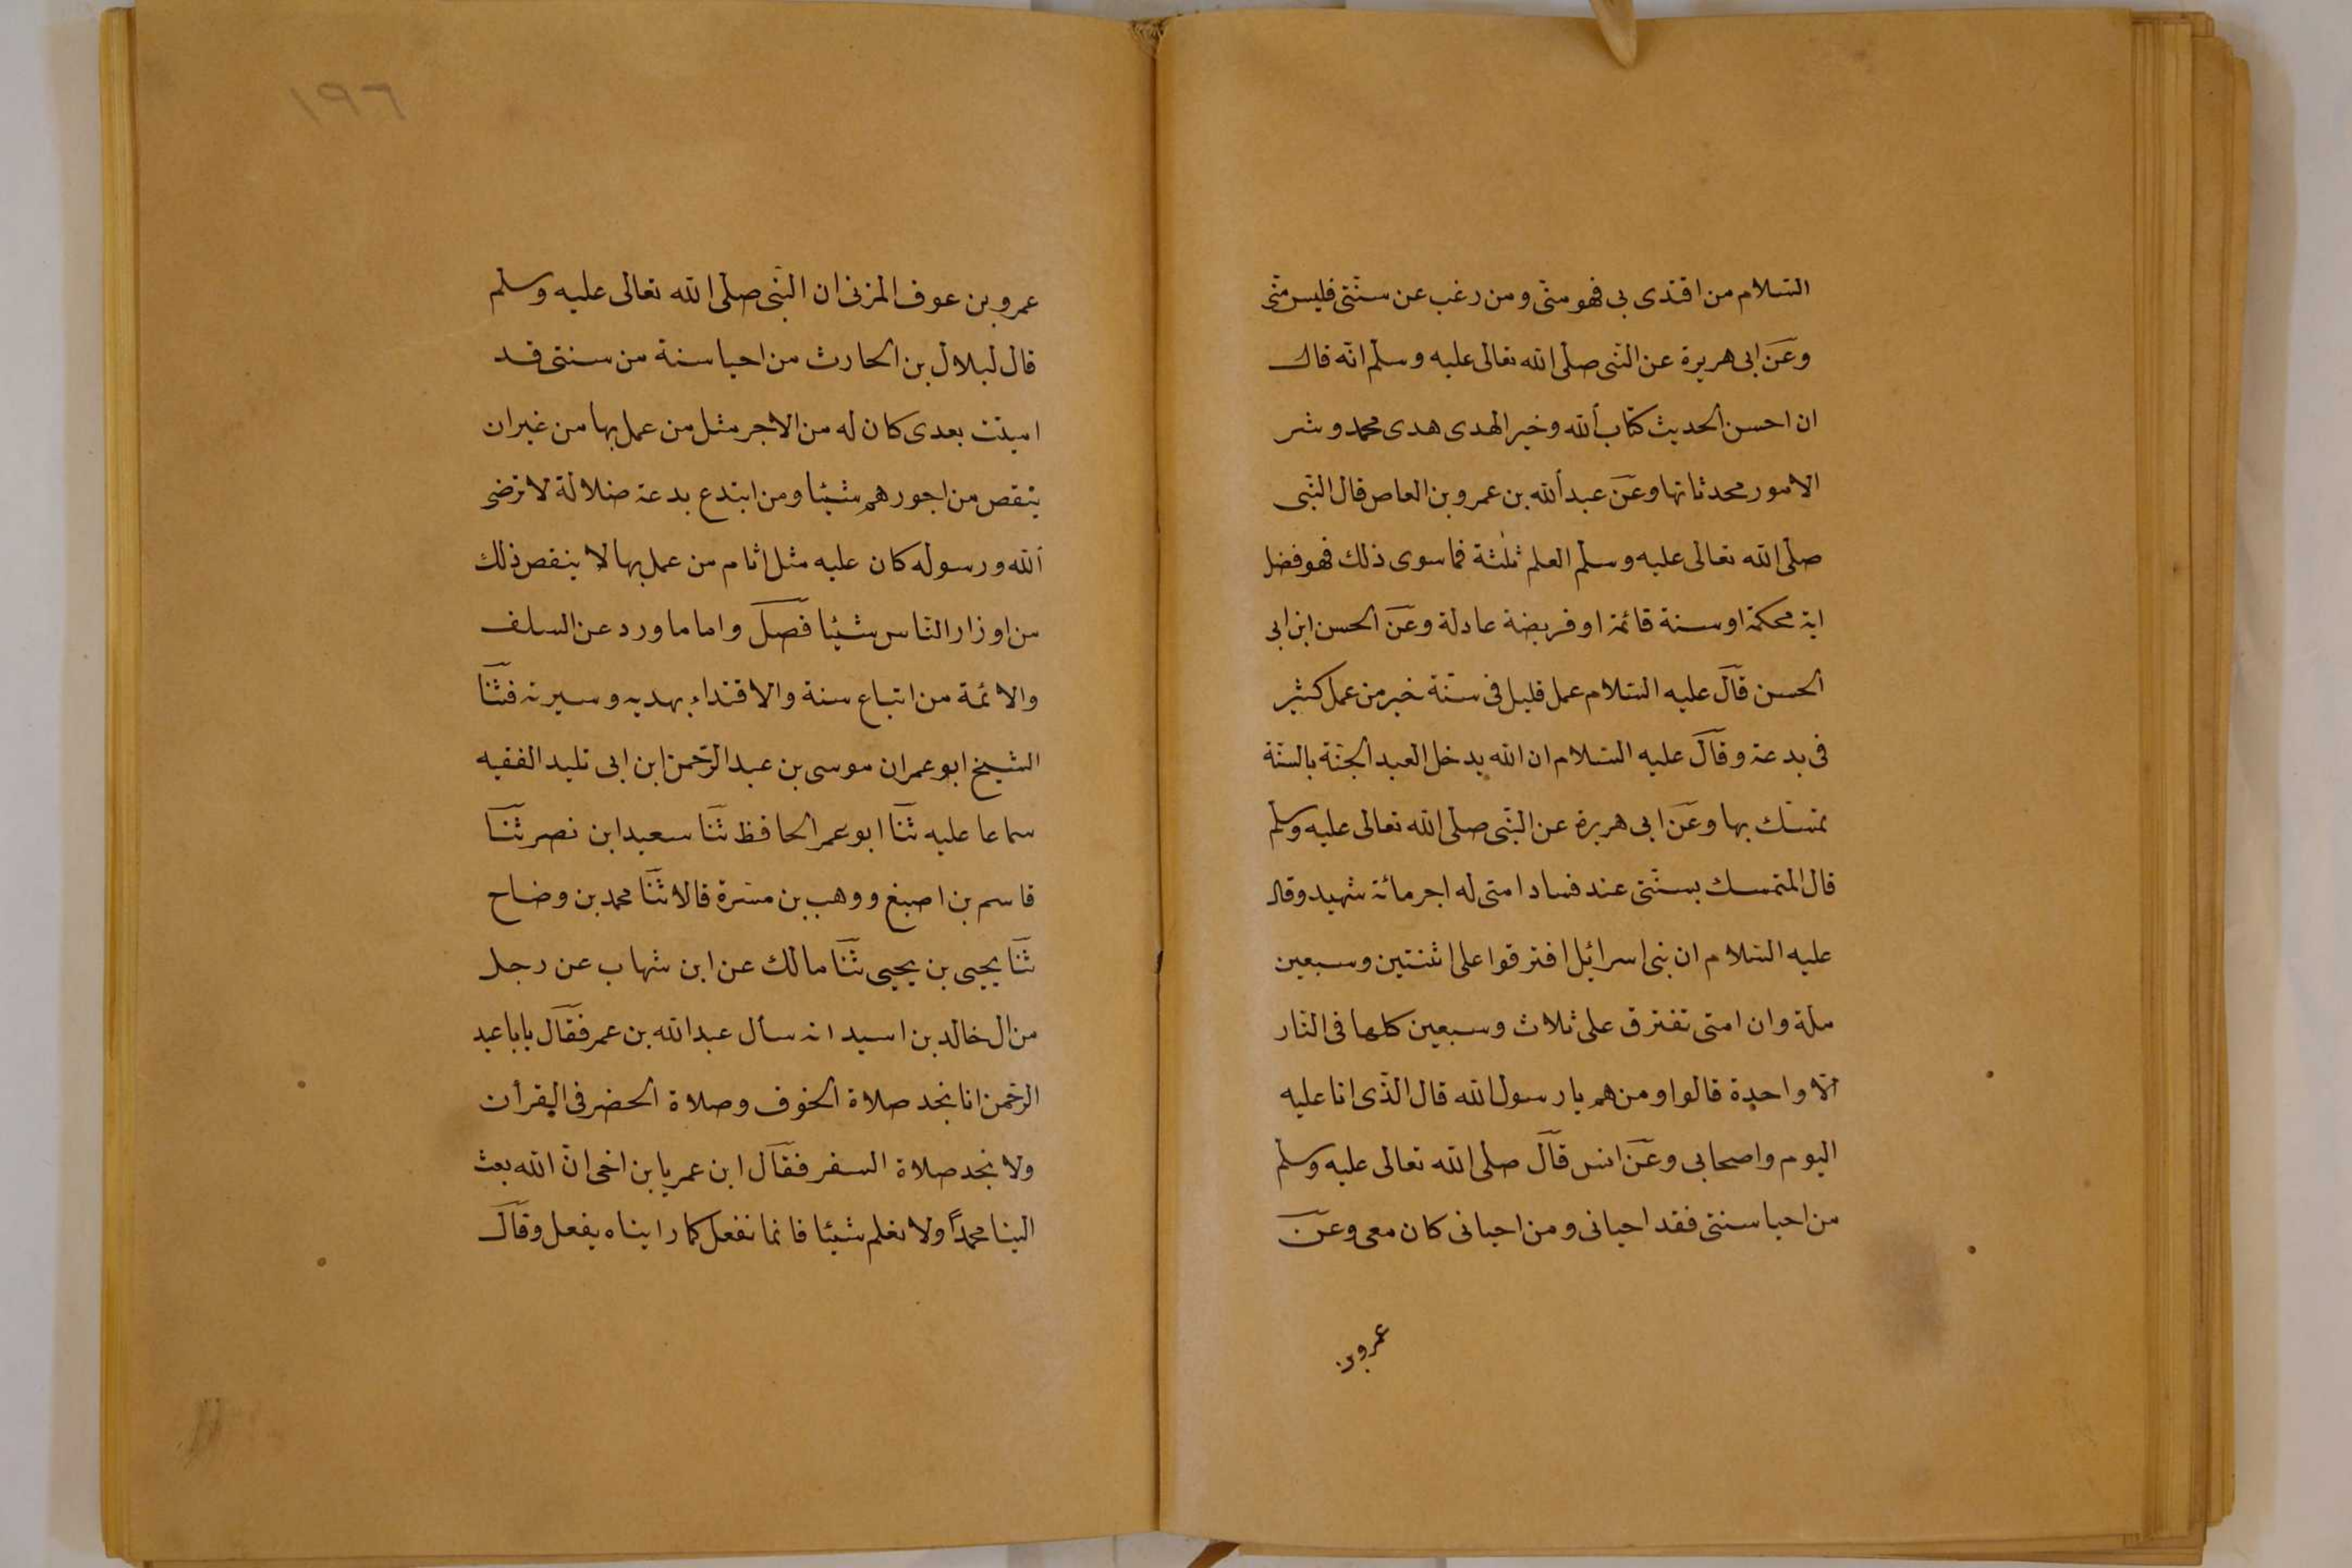 السّلام من اقتدى بى فهو منّى ومن رغب عن سنّتى فليس منّى
وعن ابى هريرة عن النّبى صلى الله تعالى عليه وسلم انّه قال
ان احسن الحديث كتاب ألله وخير الهدى هدى محمد وشر
الامور محدثاتها وعن عبد ألله بن عمرو بن العاص قال النّبى
صلى الله تعالى عليه وسلم العلم ثلثة فما سوى ذلك فهو فضل
اية محكمة او سنة قائمة او فريضة عادلة وعن الحسن ابن ابى
الحسن قال عليه السّلام عمل قليل فى سنّة خير من عمل كثير
فى بدعة وقال عليه السّلام ان الله يدخل العبد الجنّة بالسنّة
تمسّك بها وعن ابى هريرة عن النّبى صلى الله تعالى عليه وسلم
قال المتمسك بسنّتى عند فساد امتى له اجر مائة شهيد وقال
عليه السّلام ان بنى اسرائيل افترقوا على اثنتين وسبعين
ملة وان امتى تفترق على ثلاث وسبعين كلها فى النّار
الّا واحدة قالوا ومن هم يا رسول الله قال الّذى انا عليه
اليوم واصحابى وعن انس قال صلى الله تعالى عليه وسلم
من احيا سنتى فقد احيانى ومن احيانى كان معى وعن
عمرو بن
١٩٦
عمرو بن عوف المزنى ان النّبى صلى الله تعالى عليه وسلم
قال لبلال بن الحارث من احيا سنة من سنتى قد
اميتت بعدى كان له من الاجر مثل من عمل بها من غير ان
ينقص من اجورهم شيئا ومن ابتدع بدعة ضلالة لا ترضى
ألله ورسوله كان عليه مثل اثام من عمل بها لا ينقص ذلك
من اوزار النّاس شيئا فصل واما ما ورد عن السلف
والائمة من اتباع سنة والاقتداء بهديه وسيرته فثنا
الشيخ ابو عمران موسى بن عبد الرّحمن ابن ابى تليد الفقيه
سماعا عليه ثنا ابو عمر الحافظ ثنا سعيد ابن نصر ثنا
قاسم بن اصبغ ووهب بن مسرة قالا ثنا محمد بن وضاح
ثنا يحيى بن يحيى ثنا مالك عن ابن شهاب عن رجل
من ال خالد بن اسيد انه سأل عبد الله بن عمر فقال يا با عبد
الرّحمن انا نجد صلاة الخوف وصلاة الحضر فى القرأن
ولا نجد صلاة السفر فقال ابن عمر يا بن اخى انّ الله بعث
الينا محمدًا ولا نعلم شيئا فانما نفعل كما رايناه يفعل وقال